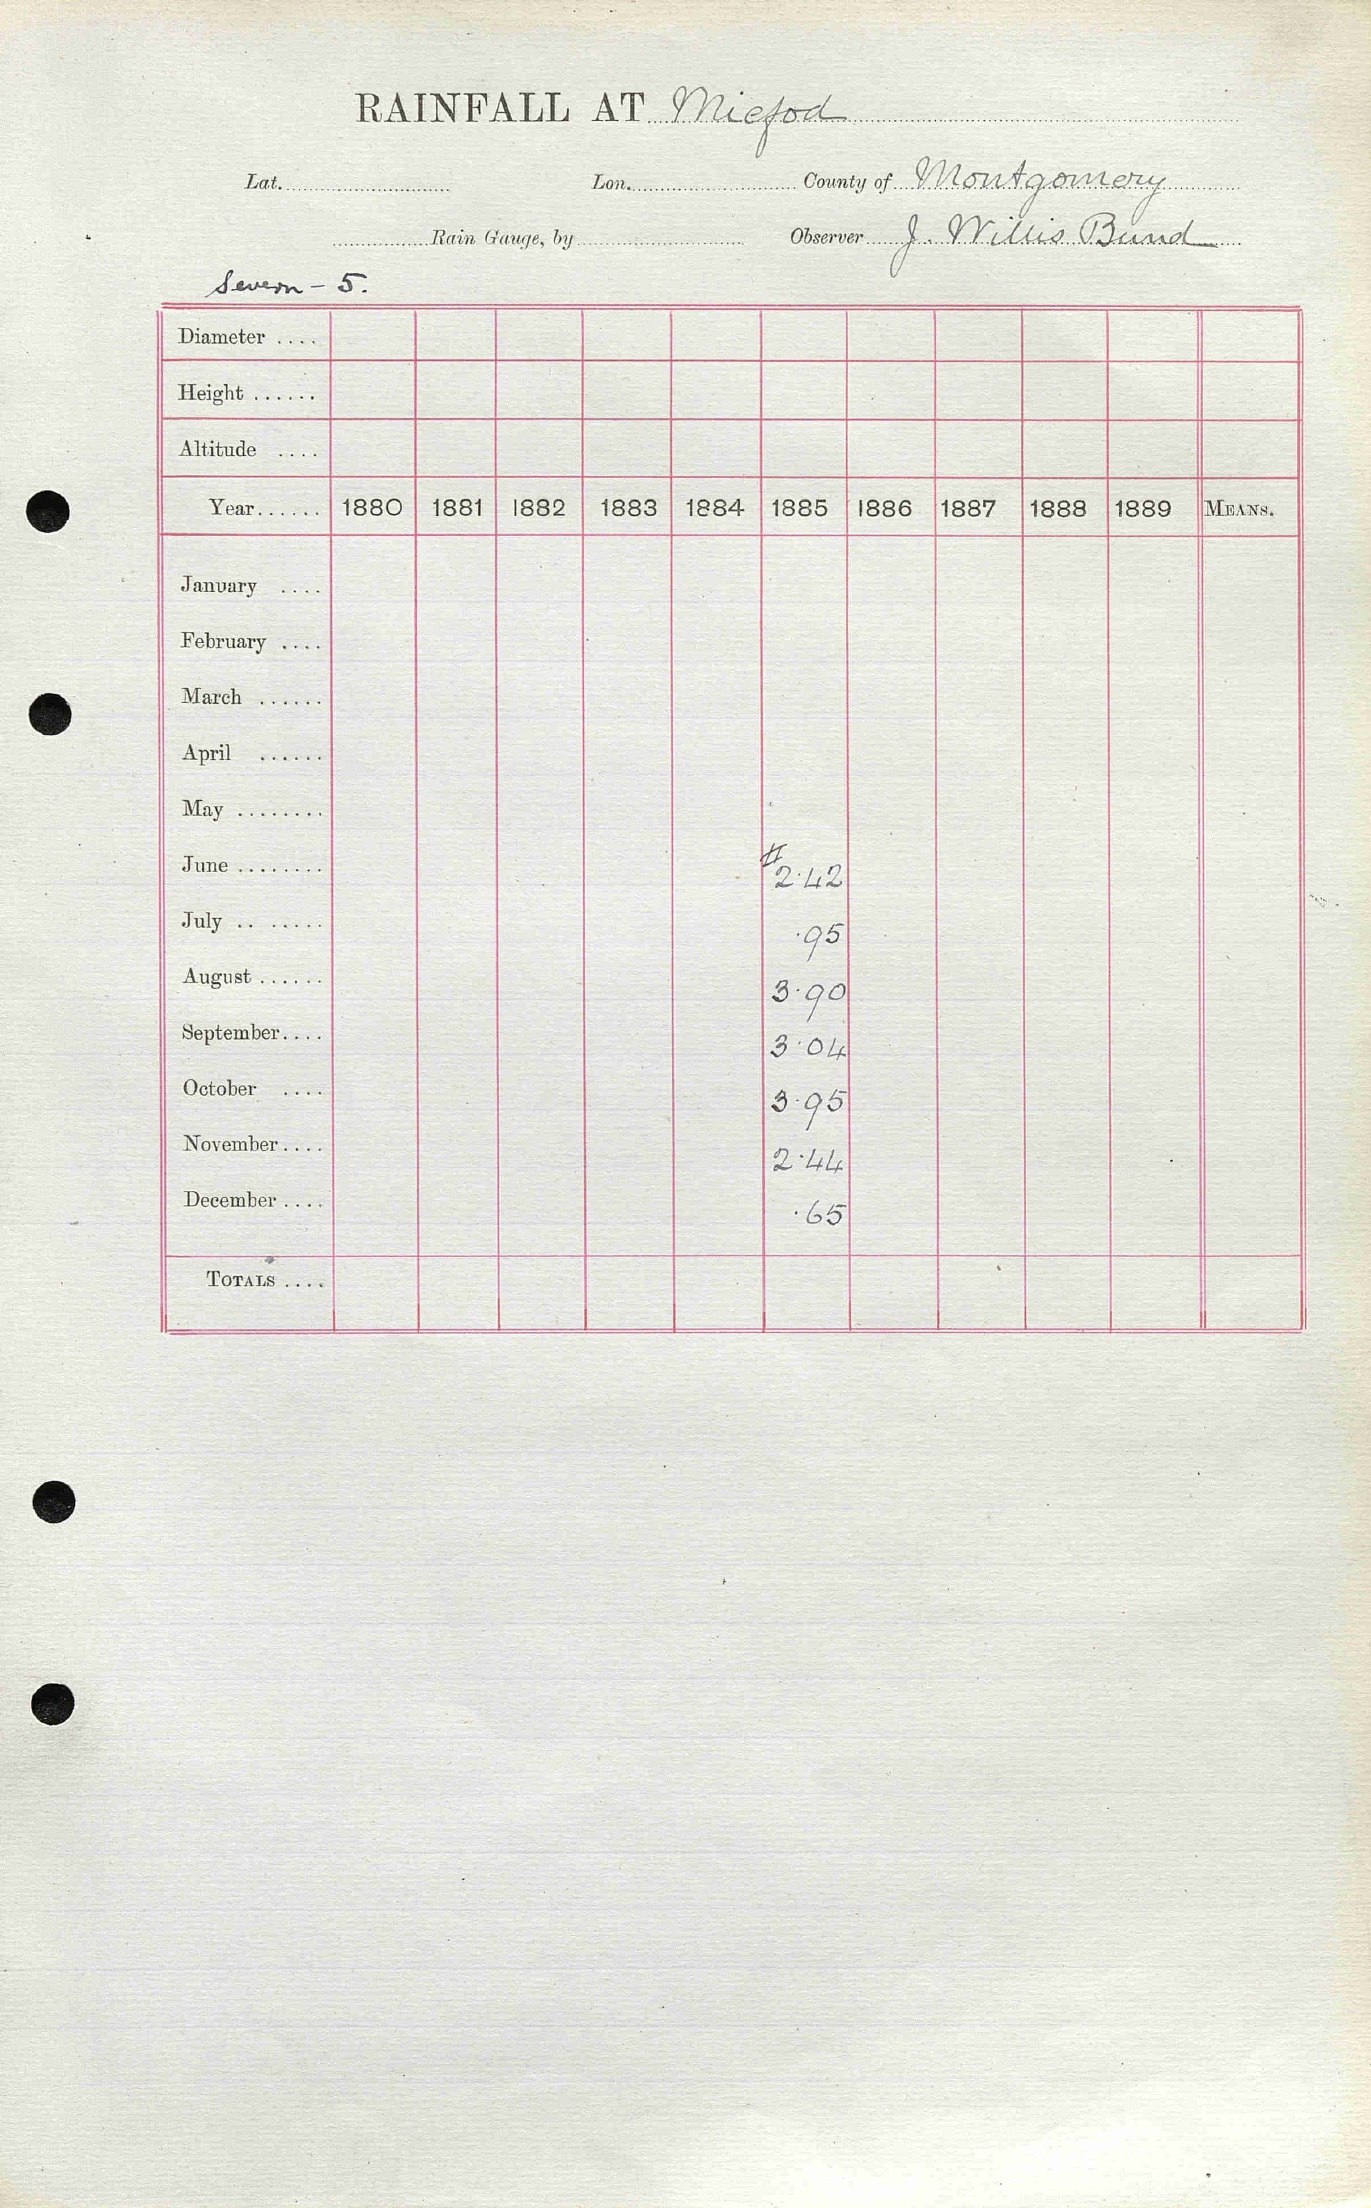 RAINFALL AT Miefod
Lat. Lon. County of Montgomery
Rain Gauge, by Observer J. Willis Bund
Severn - 5.
Diameter ....
Height ......
Altitude ....
Year...... 1880 1881 1882 1883 1884 1885 1886 1887 1888 1889 MEANS.
January ....
February ....
March ......
April ......
May ........
June ........ # 2.42
July .. ..... .95
August ...... 3.90
September.... 3.04
October .... 3.95
November.... 2.44
December .... .65
TOTALS ....